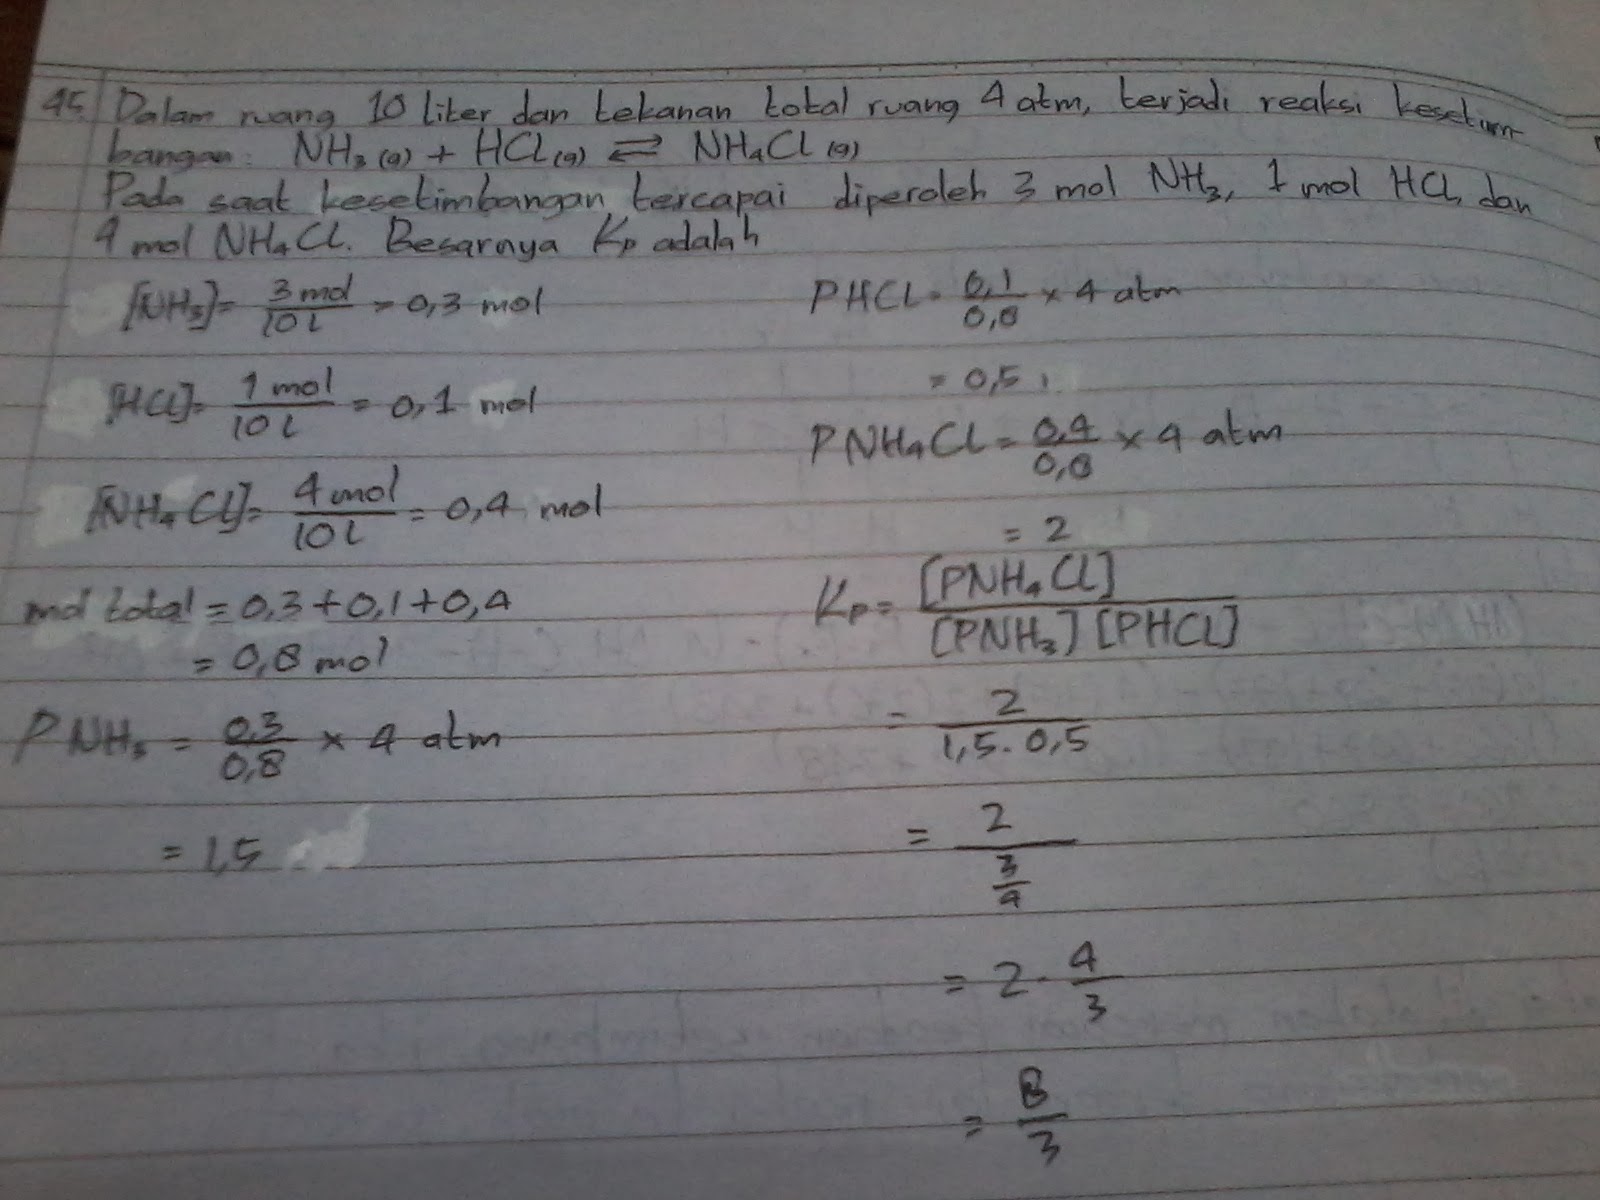 45. Dalam ruang 10 liter dan tekanan total ruang 4 atm, terjadi reaksi kesetim-
bangan: NH₃ (g) + HCl (g) ⇌ NH₄Cl (g)
Pada saat kesetimbangan tercapai diperoleh 3 mol NH₃, 1 mol HCl, dan
4 mol NH₄Cl. Besarnya Kp adalah
[NH₃] = 3 mol / 10 L = 0,3 mol
[HCl] = 1 mol / 10 L = 0,1 mol
[NH₄Cl] = 4 mol / 10 L = 0,4 mol
mol total = 0,3 + 0,1 + 0,4
= 0,8 mol
PNH₃ = 0,3 / 0,8 × 4 atm
= 1,5
PHCl = 0,1 / 0,8 × 4 atm
= 0,5
PNH₄Cl = 0,4 / 0,8 × 4 atm
= 2
Kp = [PNH₄Cl] / [PNH₃] [PHCl]
= 2 / 1,5 . 0,5
= 2 / 3/4
= 2 . 4/3
= 8/3